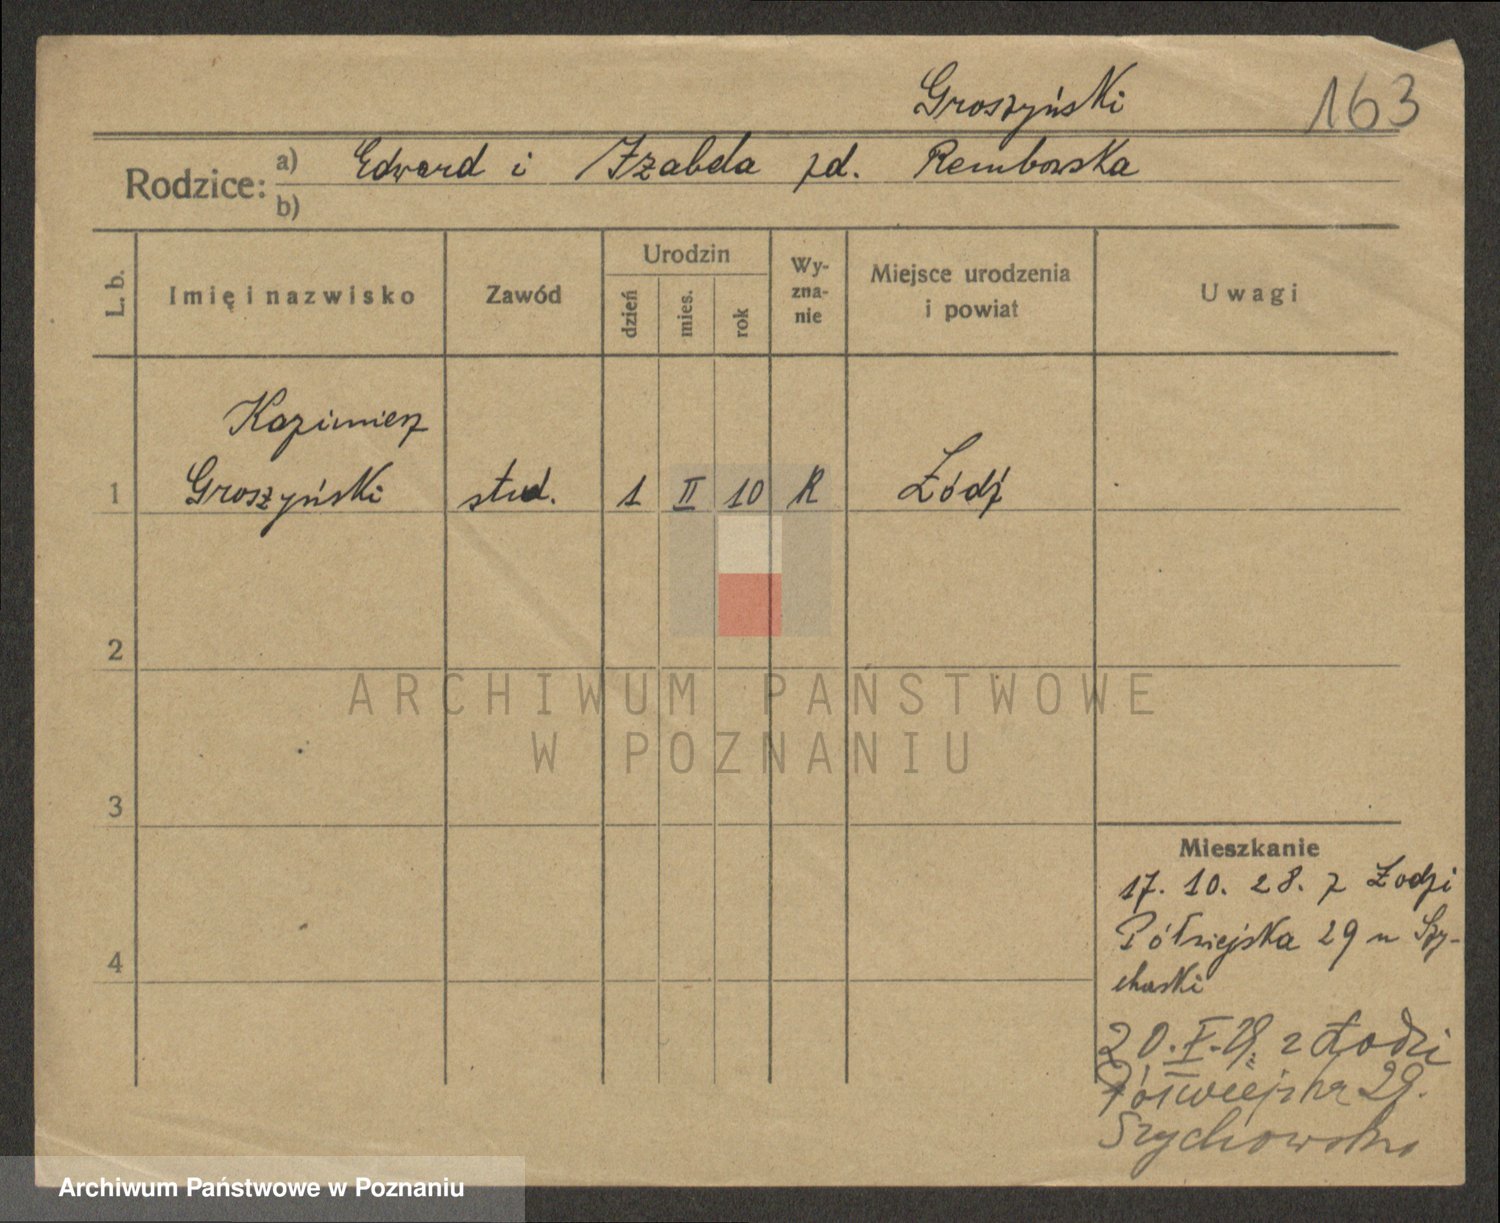 Groszyński
163
Rodzice:
a) Edward i Izabela zd. Rembowska
b)
L. b.
Imię i nazwisko
Zawód
Urodzin
dzień
mies.
rok
Wy-
zna-
nie
Miejsce urodzenia
i powiat
Uwagi
Kazimierz
1 Groszyński stud. 1 II 10 R Łódź
2
3
4
Mieszkanie
17. 10. 28. z Łodzi
Półwiejska 29 u Szy-
chowski
20. V. 29. z Łodzi
Półwiejska 29.
Szychowska
ARCHIWUM PAŃSTWOWE
W POZNANIU
Archiwum Państwowe w Poznaniu